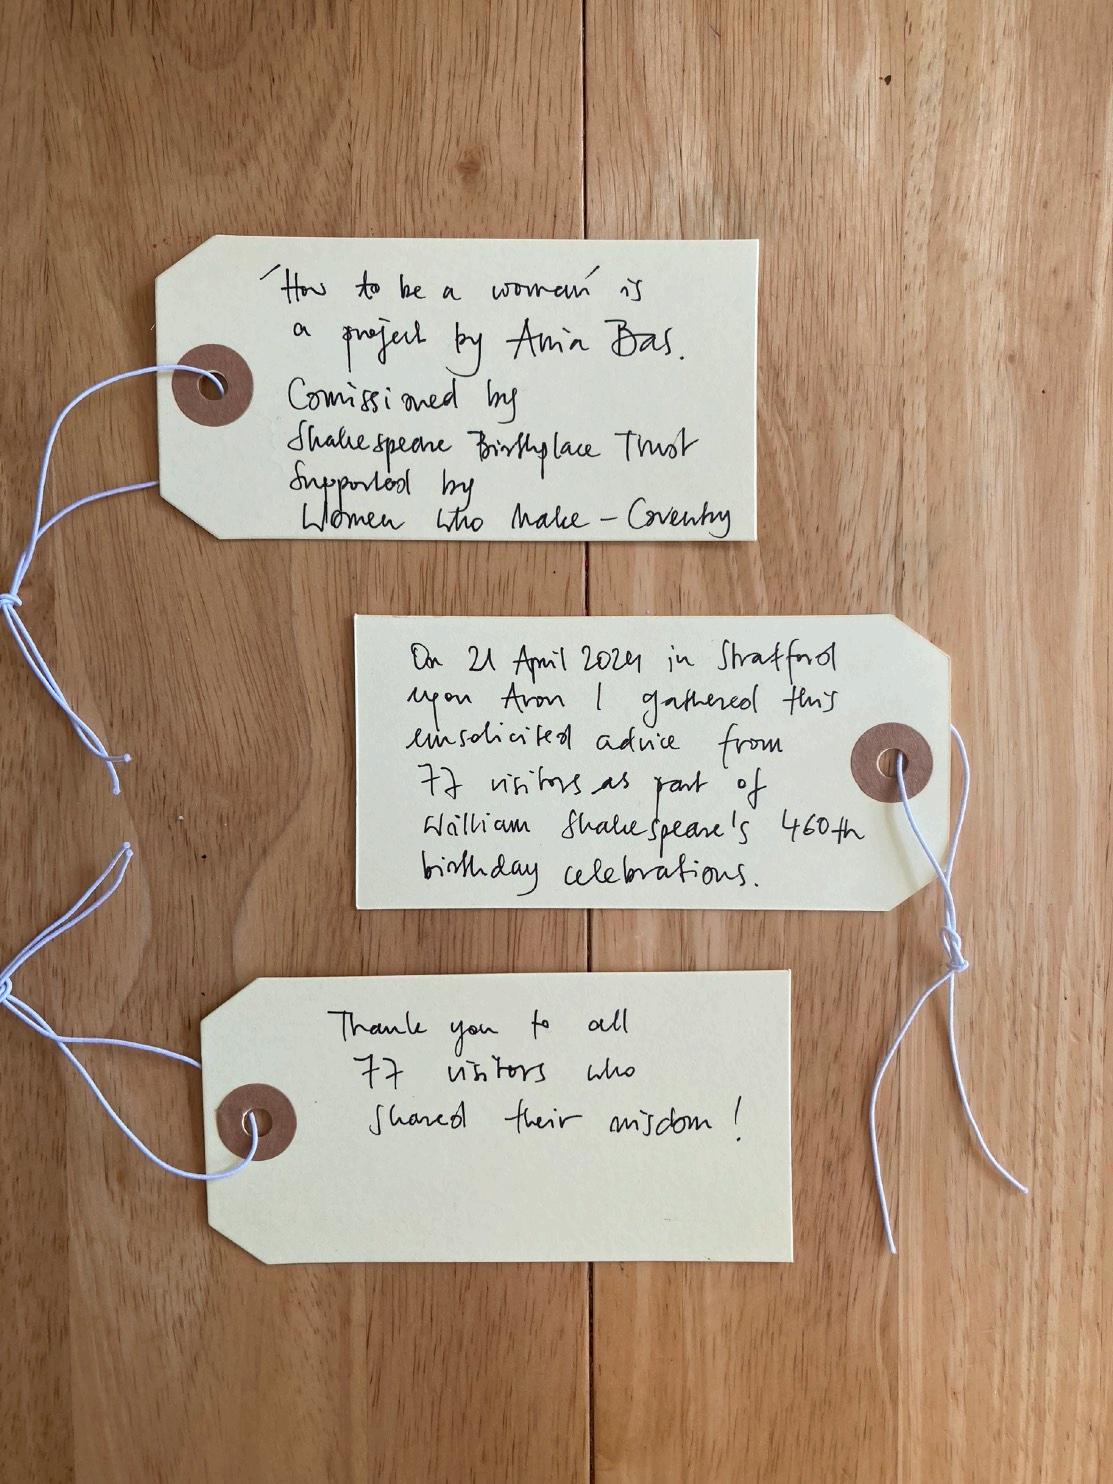 'How to be a woman' is
a project by Ania Bas.
Comissioned by
Shakespeare Birthplace Trust
Supported by
Women who Make – Coventry
On 21 April 2024 in Stratford
upon Avon I gathered this
unsolicited advice from
77 visitors as part of
William Shakespeare's 460th
birthday celebrations.
Thank you to all
77 visitors who
shared their wisdom!